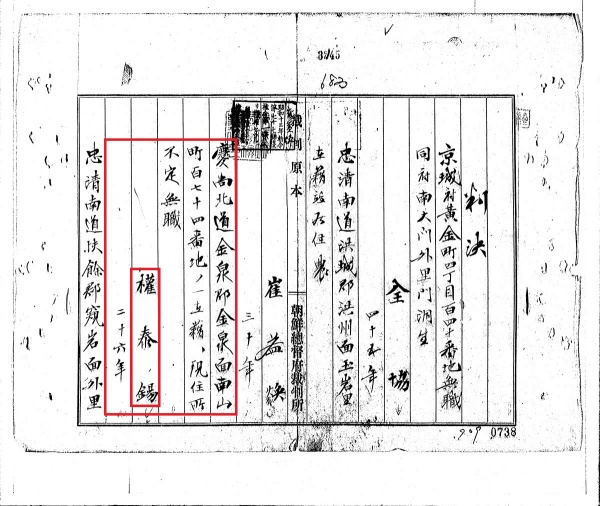 33/45
683
判決
京城府黃金町四丁目百四十番地無職
同府南大門外里門洞生
全協
四十五年
忠清南道洪城郡洪州面玉岩里
在籍並居住農
崔益煥
三十年
裁判原本
朝鮮總督府裁判所
慶尚北道金泉郡金泉面南山
町百七十四番地ノ一在籍、現住所
不定無職
權泰錫
二十六年
忠清南道扶餘郡窺岩面外里
0738